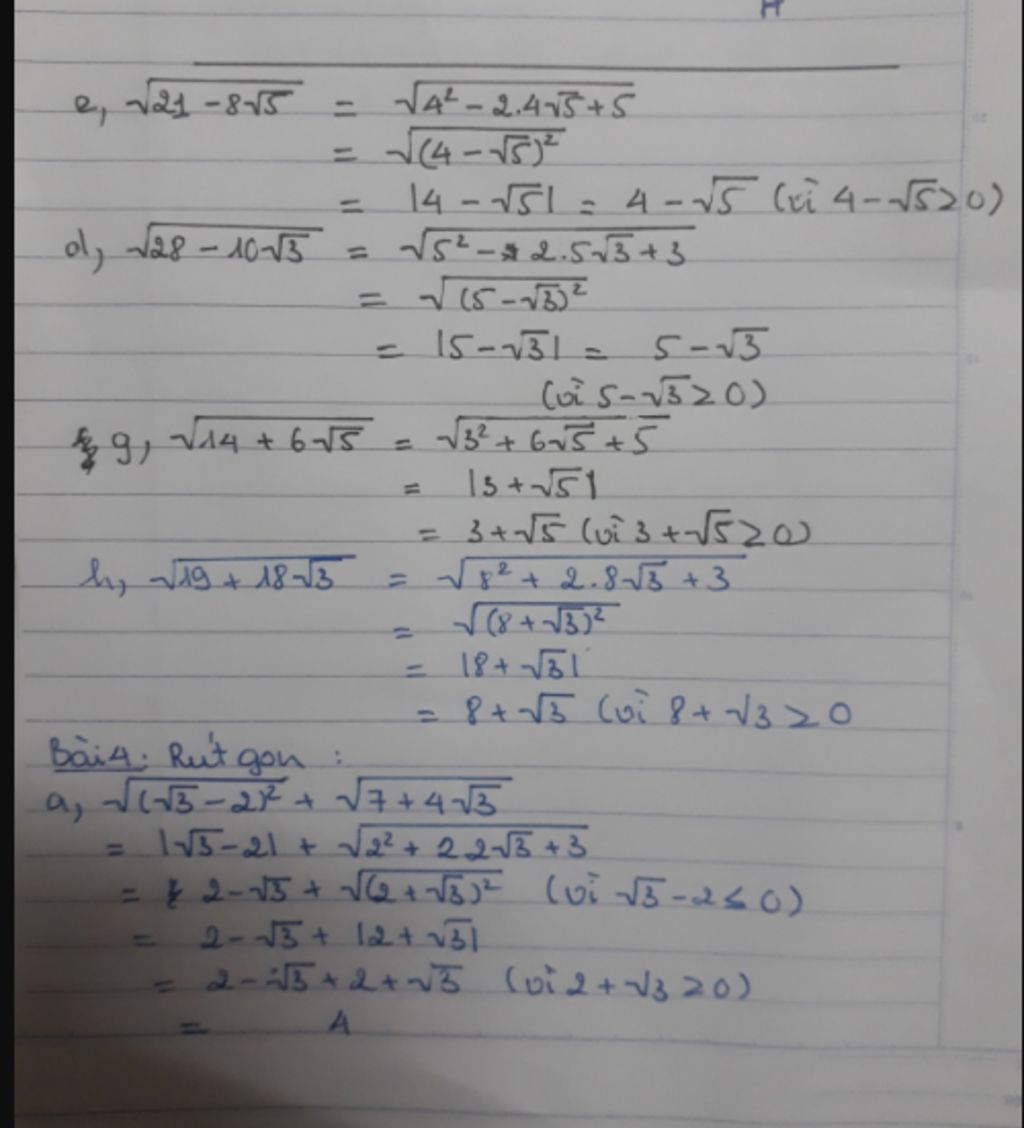 e, √(21 - 8√5) = √(4² - 2.4√5 + 5)
= √((4 - √5)²)
= |4 - √5| = 4 - √5 (vì 4 - √5 ≥ 0)
d, √(28 - 10√3) = √(5² - 2.5√3 + 3)
= √((5 - √3)²)
= |5 - √3| = 5 - √3
(vì 5 - √3 ≥ 0)
g, √(14 + 6√5) = √(3² + 6√5 + 5)
= |3 + √5|
= 3 + √5 (vì 3 + √5 ≥ 0)
h, √(19 + 18√3) = √(8² + 2.8√3 + 3)
= √((8 + √3)²)
= |8 + √3|
= 8 + √3 (vì 8 + √3 ≥ 0
Bài 4: Rút gọn :
a, √((√3 - 2)²) + √(7 + 4√3)
= |√3 - 2| + √(2² + 2 2√3 + 3)
= 2 - √3 + √((2 + √3)²) (vì √3 - 2 ≤ 0)
= 2 - √3 + |2 + √3|
= 2 - √3 + 2 + √3 (vì 2 + √3 ≥ 0)
= 4